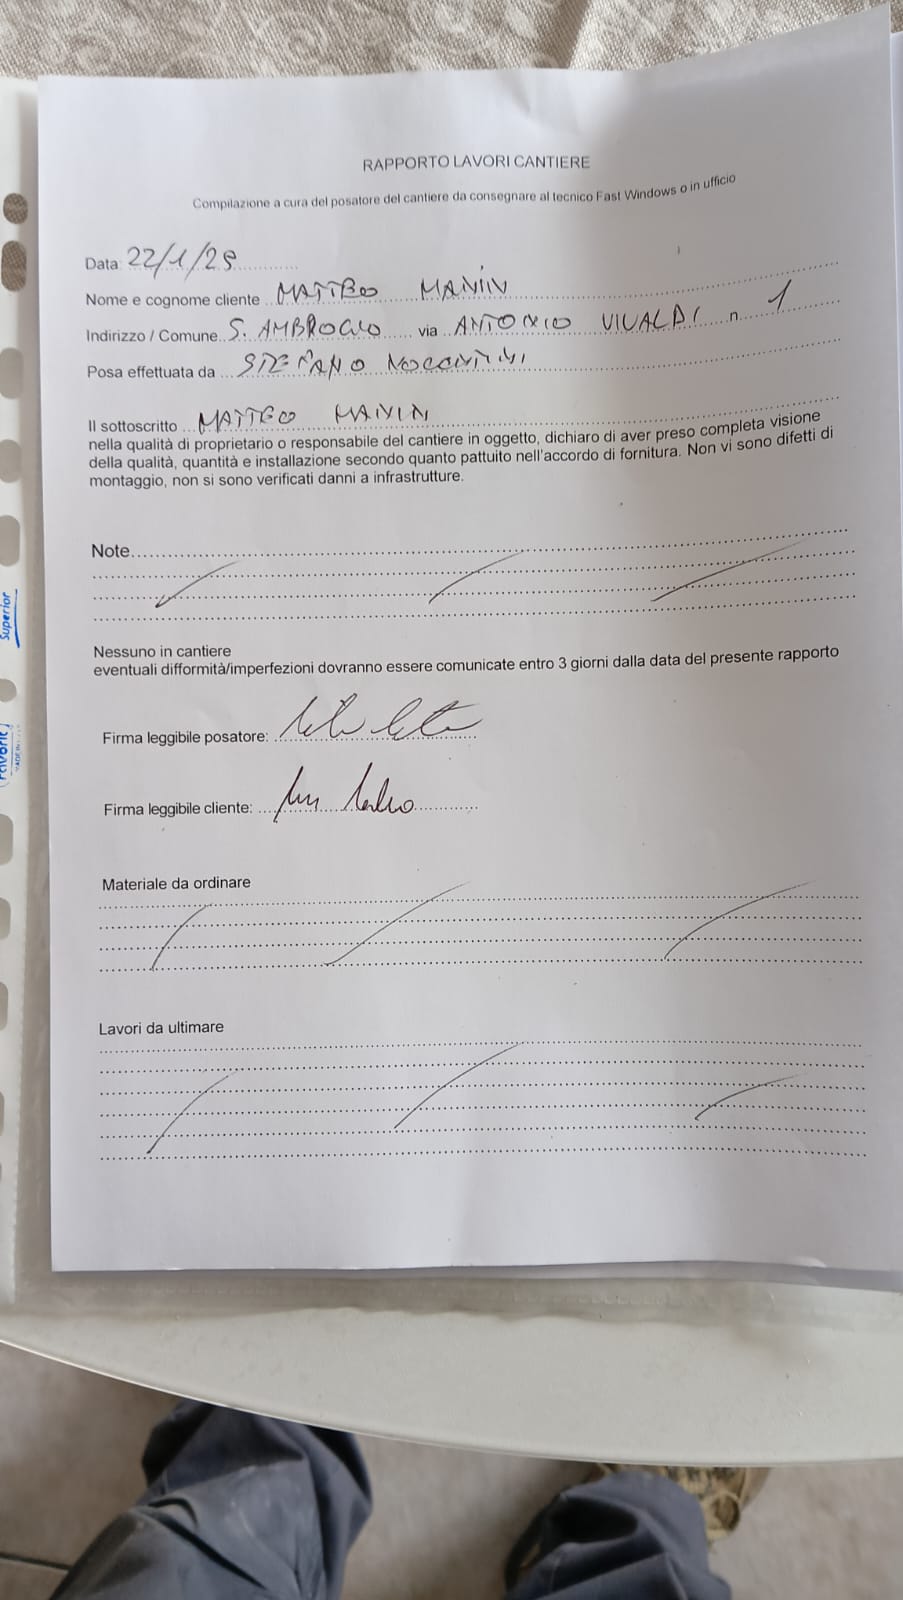 RAPPORTO LAVORI CANTIERE
Compilazione a cura del posatore del cantiere da consegnare al tecnico Fast Windows o in ufficio
Data 22/1/25
Nome e cognome cliente MATTEO MANIN
Indirizzo / Comune S. AMBROGIO via ANTONIO VIVALDI n. 1
Posa effettuata da STEFANO NOCENTINI
Il sottoscritto MATTEO MANIN
nella qualità di proprietario o responsabile del cantiere in oggetto, dichiaro di aver preso completa visione
della qualità, quantità e installazione secondo quanto pattuito nell'accordo di fornitura. Non vi sono difetti di
montaggio, non si sono verificati danni a infrastrutture.
Note
Nessuno in cantiere
eventuali difformità/imperfezioni dovranno essere comunicate entro 3 giorni dalla data del presente rapporto
Firma leggibile posatore:
Firma leggibile cliente:
Materiale da ordinare
Lavori da ultimare
Superior
Favorit